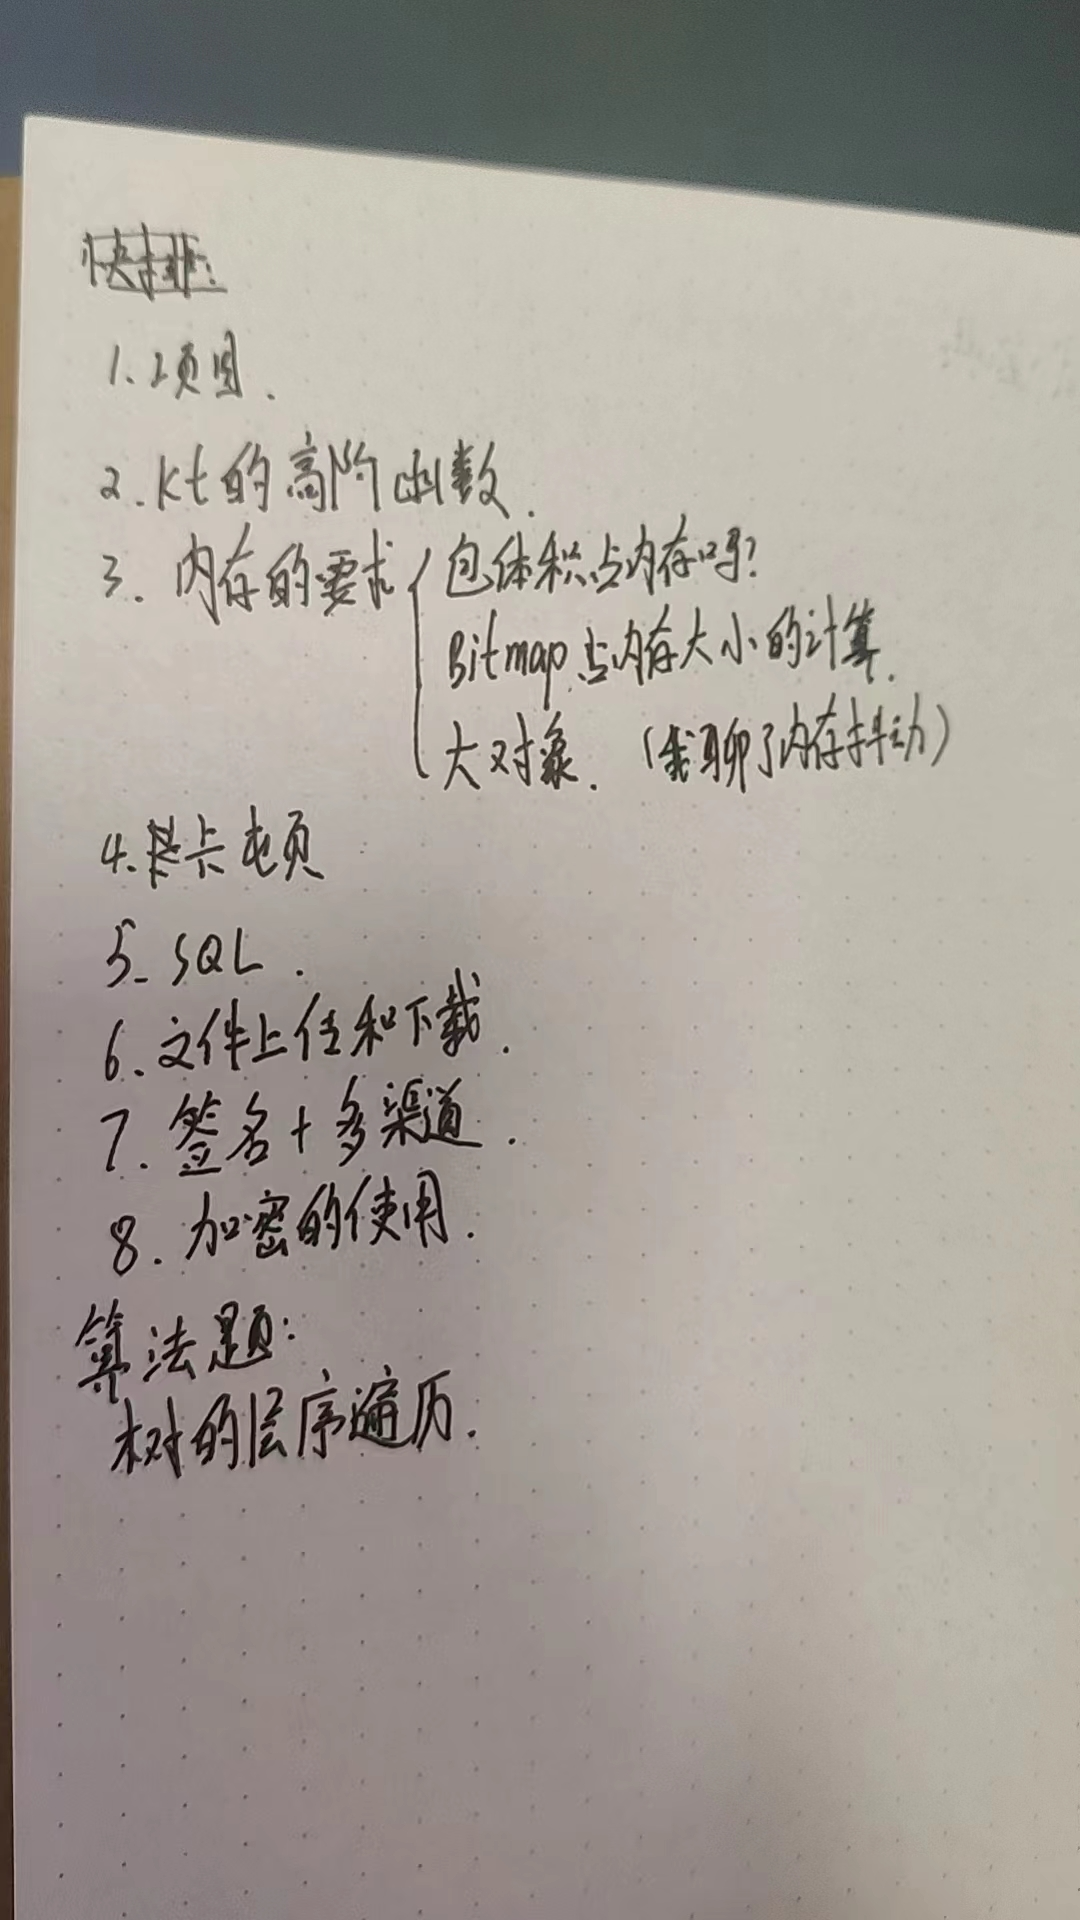 快排:
1. 项目.
2. kt的高阶函数.
3. 内存的要求 包体积占内存吗?
Bitmap占内存大小的计算.
大对象. (我聊了内存抖动)
4. 卡顿
5. SQL.
6. 文件上传和下载.
7. 签名+多渠道.
8. 加密的使用.
算法题:
树的层序遍历.